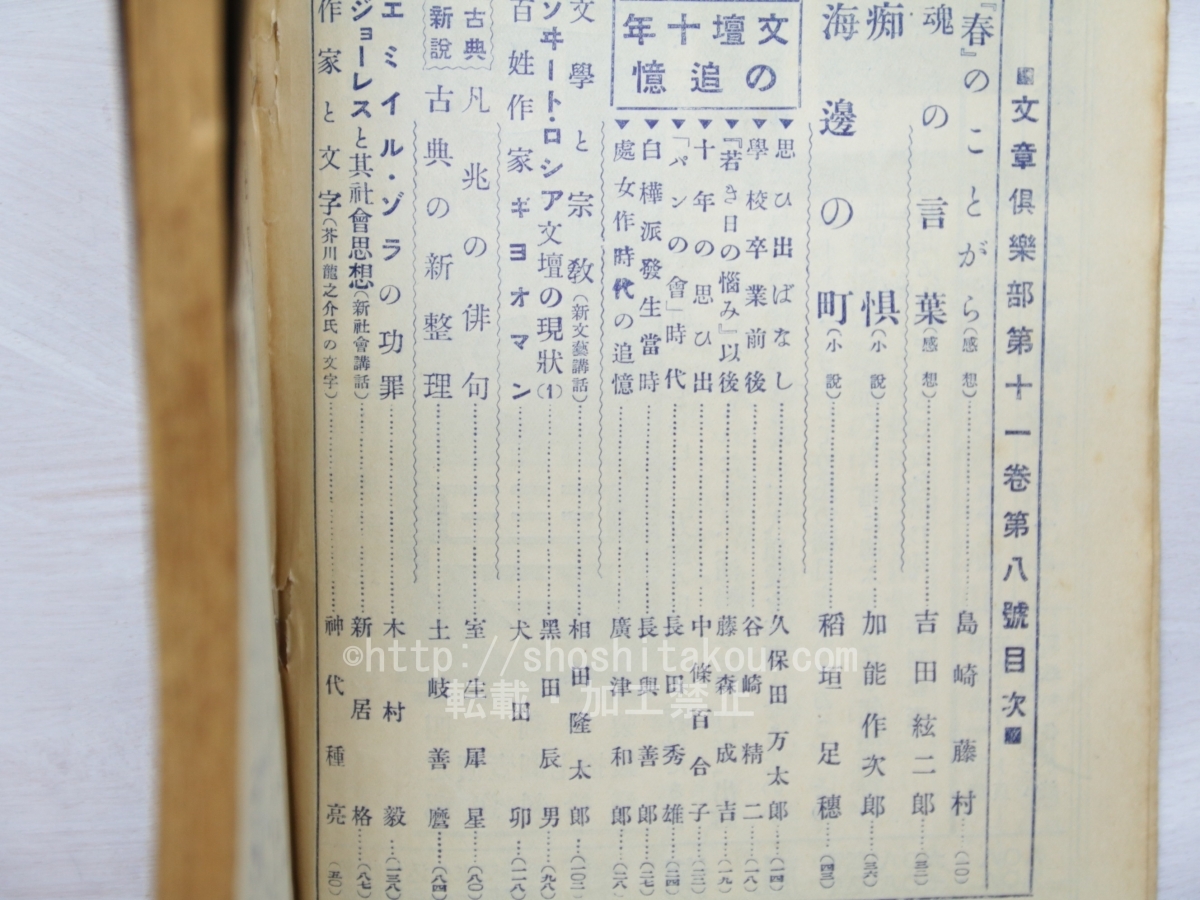 文章倶樂部第十一卷第八號目次
『春』のことがら(感想)……島崎藤村……(一〇)
魂の言葉(感想)……吉田絃二郎……(三二)
痴惧(小說)……加能作次郎……(三六)
海邊の町(小說)……稻垣足穗……(四三)
文壇十年の追憶
▼思ひ出ばなし……久保田万太郎……(一四)
▼學校卒業前後……谷崎精二……(一八)
▼『若き日の惱み』以後……藤森成吉……(一九)
▼十年の思ひ出……中條百合子……(二二)
▼「パンの會」時代……長田秀雄……(二四)
▼白樺派發生當時……長與善郎……(二七)
▼處女作時代の追憶……廣津和郎……(二八)
文學と宗教(新文藝講話)……相田隆太郎……(一〇二)
ソヰート・ロシア文壇の現狀(1)……黑田辰男……(九八)
百姓作家ギヨオマン……犬田卯……(一一八)
古典新說
凡兆の俳句……室生犀星……(八〇)
古典の新整理……土岐善麿……(八四)
エミイル・ゾラの功罪……木村毅……(一三八)
ジョーレスと其社會思想(新社會講話)……新居格……(八七)
作家と文字(芥川龍之介氏の文字)……神代種亮……(五〇)
©http://shoshitakou.com
転載・加工禁止